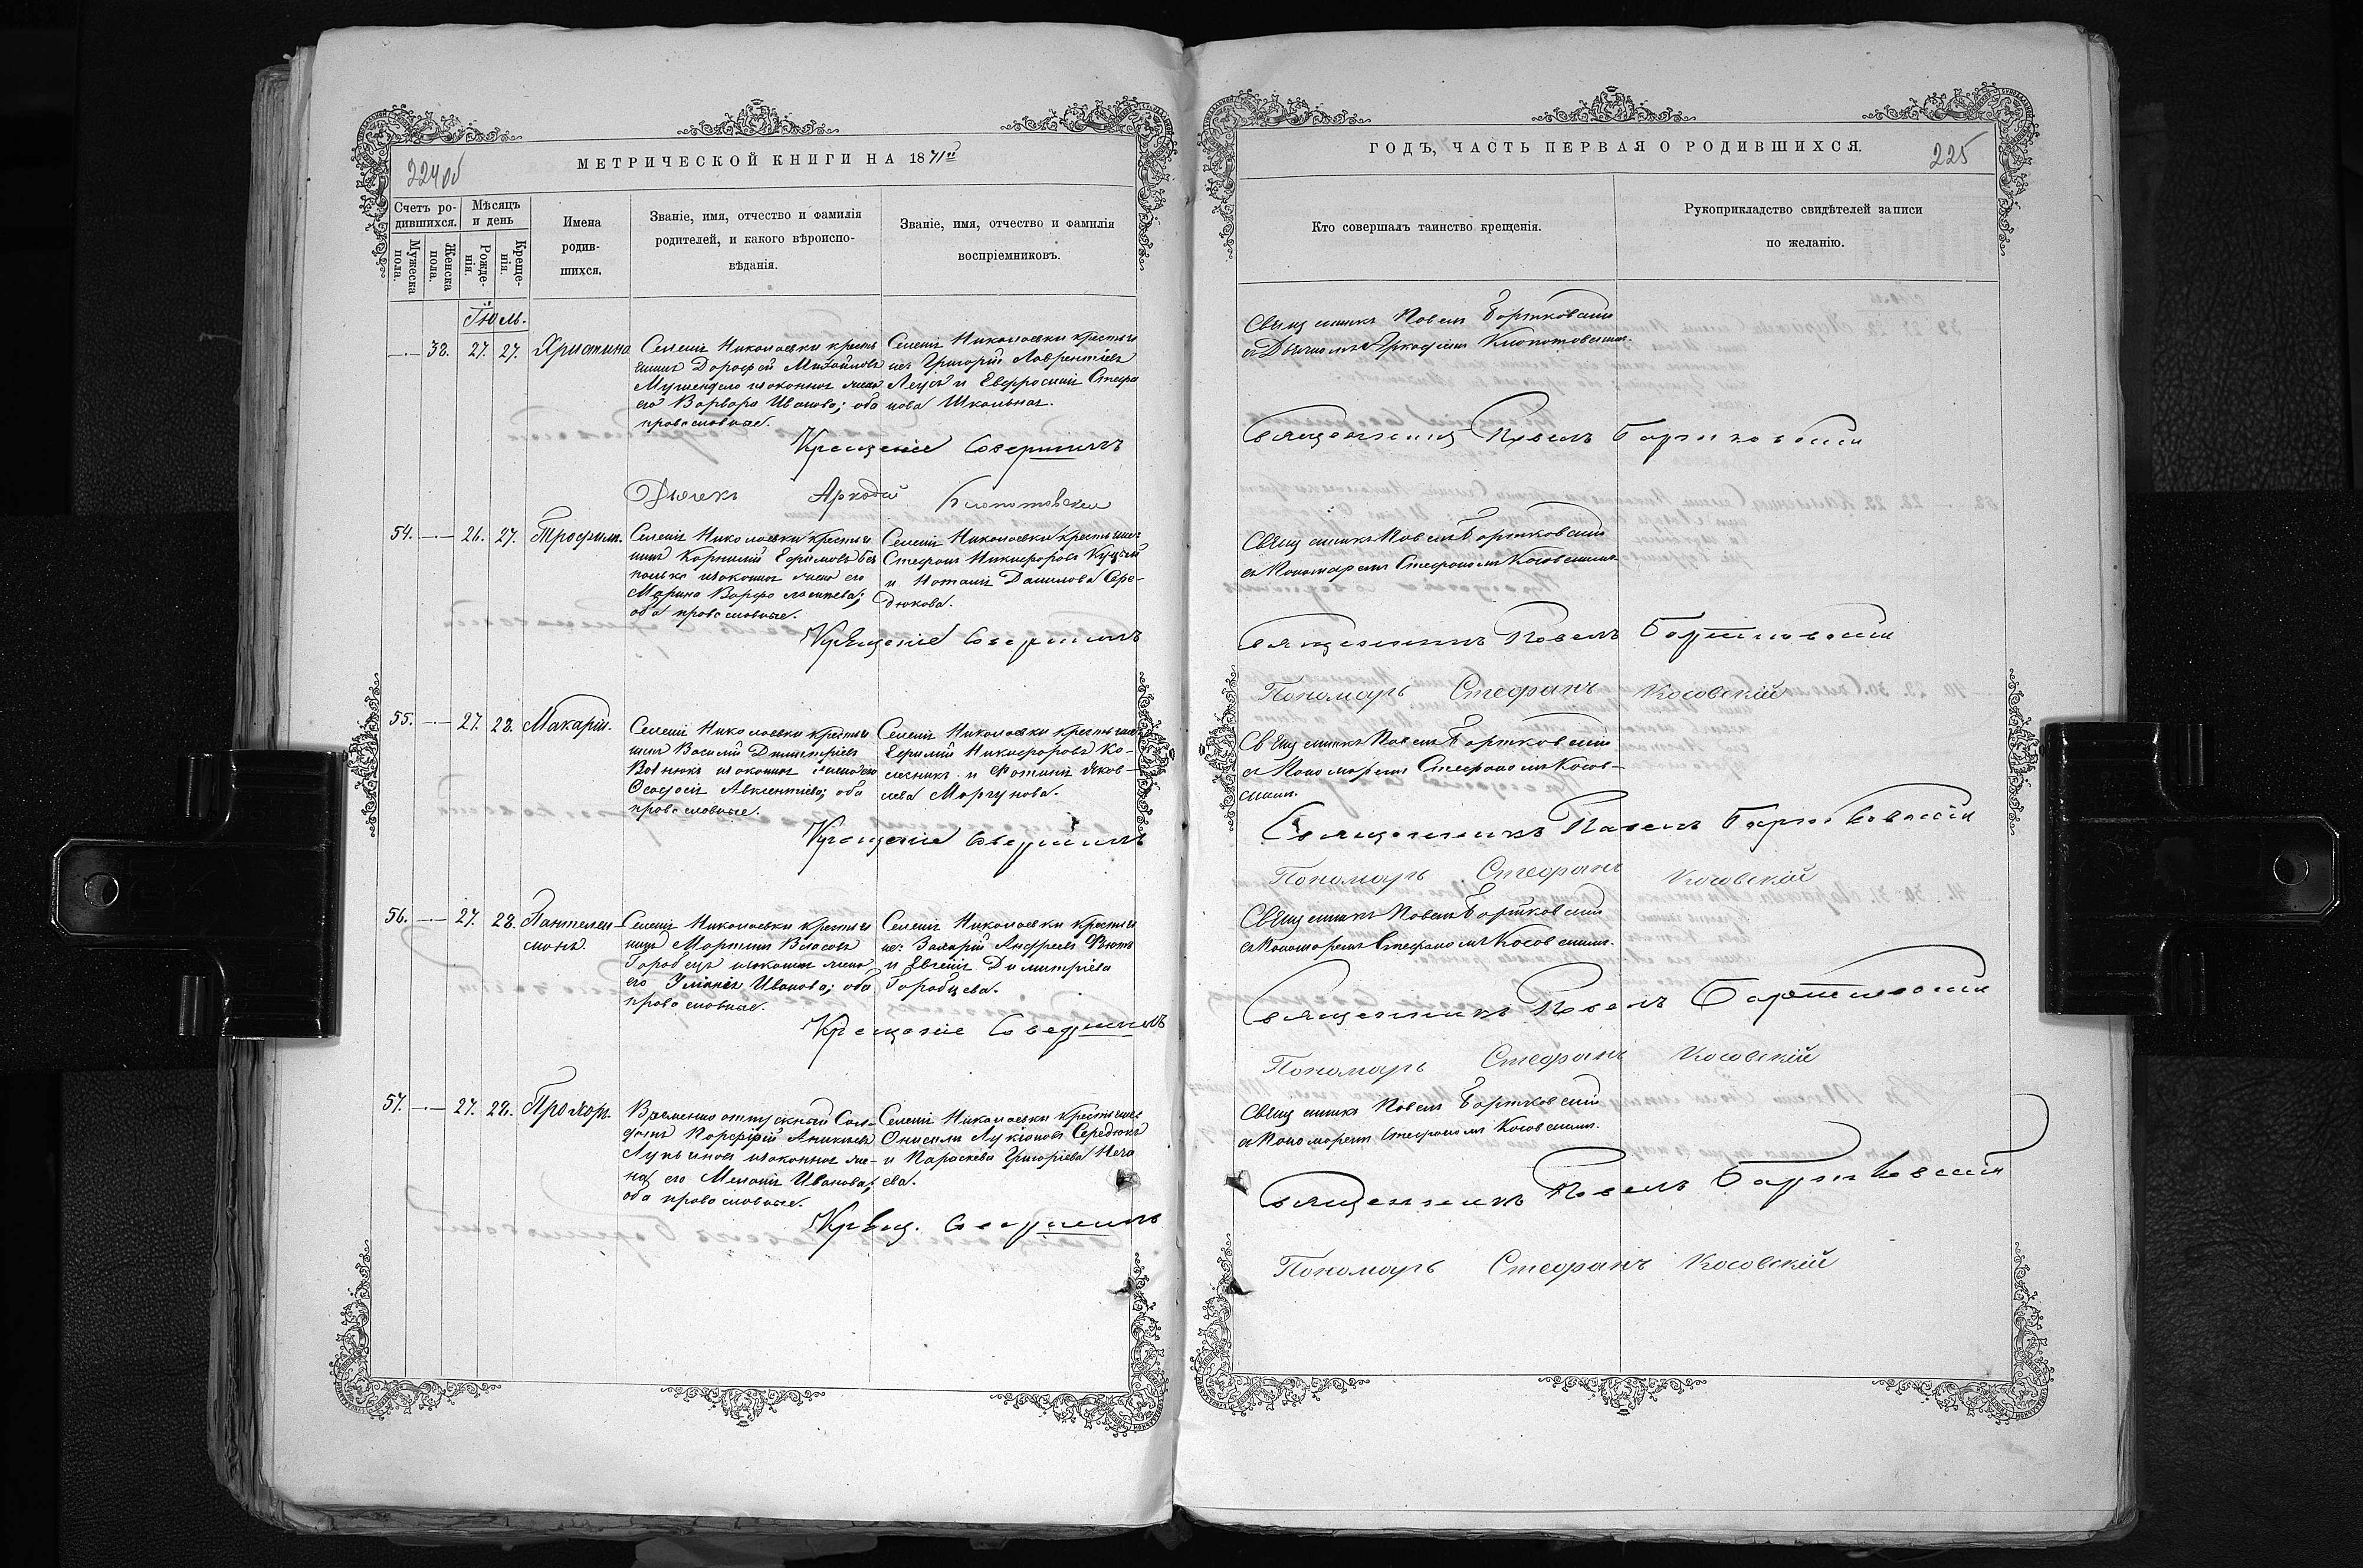 224 об
МЕТРИЧЕСКОЙ КНИГИ НА 1871й
Счетъ ро-
дившихся.
Мѣсяцъ
и день
Мужеска
пола.
Женска
пола.
Рожде-
нія.
Креще-
нія.
Имена
родив-
шихся.
Званіе, имя, отчество и фамилія
родителей, и какого вѣроиспо-
вѣданія.
Званіе, имя, отчество и фамилія
воспріемниковъ.
Іюль.
38. 27. 27. Христина
Селенія Николаевки кресть
янинъ Дорофей Михайловъ
законная жена
его Варвара Иванова; оба
православные.
Селенія Николаевки крестья
не: Григорій Лаврентіевъ
и Евфросинія Стефа
нова Школьная.
Крещеніе совершилъ
Дьячекъ Аркадій Клопотовскій
54. 26. 27. Трофимъ.
Селенія Николаевки крестья
нинъ Корнилій Ефимовъ Без
палько законная жена его
Марина Варфоломеева;
оба православные.
Селенія Николаевки крестьяне:
Стефанъ Никифоровъ Куцый
и Наталія Данилова Сере-
дюкова.
Крещеніе совершилъ
55. 27. 28. Макарій.
Селенія Николаевки крестья
нинъ Василій Димитріевъ
Вовнюкъ законная жена его
Феодосія Авксентіева; оба
православные.
Селенія Николаевки крестьяне:
Ефимій Никифоровъ Ко-
лесникъ и Фотинія Яков-
лева Моргунова.
Крещеніе совершилъ
56. 27. 28. Пантелеи-
монъ.
Селенія Николаевки крестья
нинъ Мартинъ Власовъ
Горобецъ законная жена
его Іуліанія Иванова; оба
православные.
Селенія Николаевки крестья
не: Захарій Андреевъ
и Евгенія Димитріева
Горобцева.
Крещеніе совершилъ
57. 27. 28. Прохоръ.
Временно отпускный Сол-
датъ Порфирій
законная же-
на его Меланія Иванова;
оба православные.
Селенія Николаевки крестьяне:
Онисимъ Лукіановъ Середюкъ
и Параскева Григоріева Неча
ева.
Крещ. совершилъ
ГОДЪ, ЧАСТЬ ПЕРВАЯ О РОДИВШИХСЯ.
225
Кто совершалъ таинство крещенія.
Рукоприкладство свидѣтелей записи
по желанію.
Священникъ Павелъ Бортковскій
съ Дьячкомъ Аркадіемъ Клопотовскимъ.
Священникъ Павелъ Бортковскій
Священникъ Павелъ Бортковскій
съ Пономаремъ Стефаномъ Косовскимъ
Священникъ Павелъ Бортковскій
Пономарь Стефанъ Косовскій
Священникъ Павелъ Бортковскій
съ Пономаремъ Стефаномъ Косов-
скимъ.
Священникъ Павелъ Бортковскій
Пономарь Стефанъ Косовскій
Священникъ Павелъ Бортковскій
съ Пономаремъ Стефаномъ Косовскимъ.
Священникъ Павелъ Бортковскій
Пономарь Стефанъ Косовскій
Священникъ Павелъ Бортковскій
съ Пономаремъ Стефаномъ Косовскимъ.
Священникъ Павелъ Бортковскій
Пономарь Стефанъ Косовскій